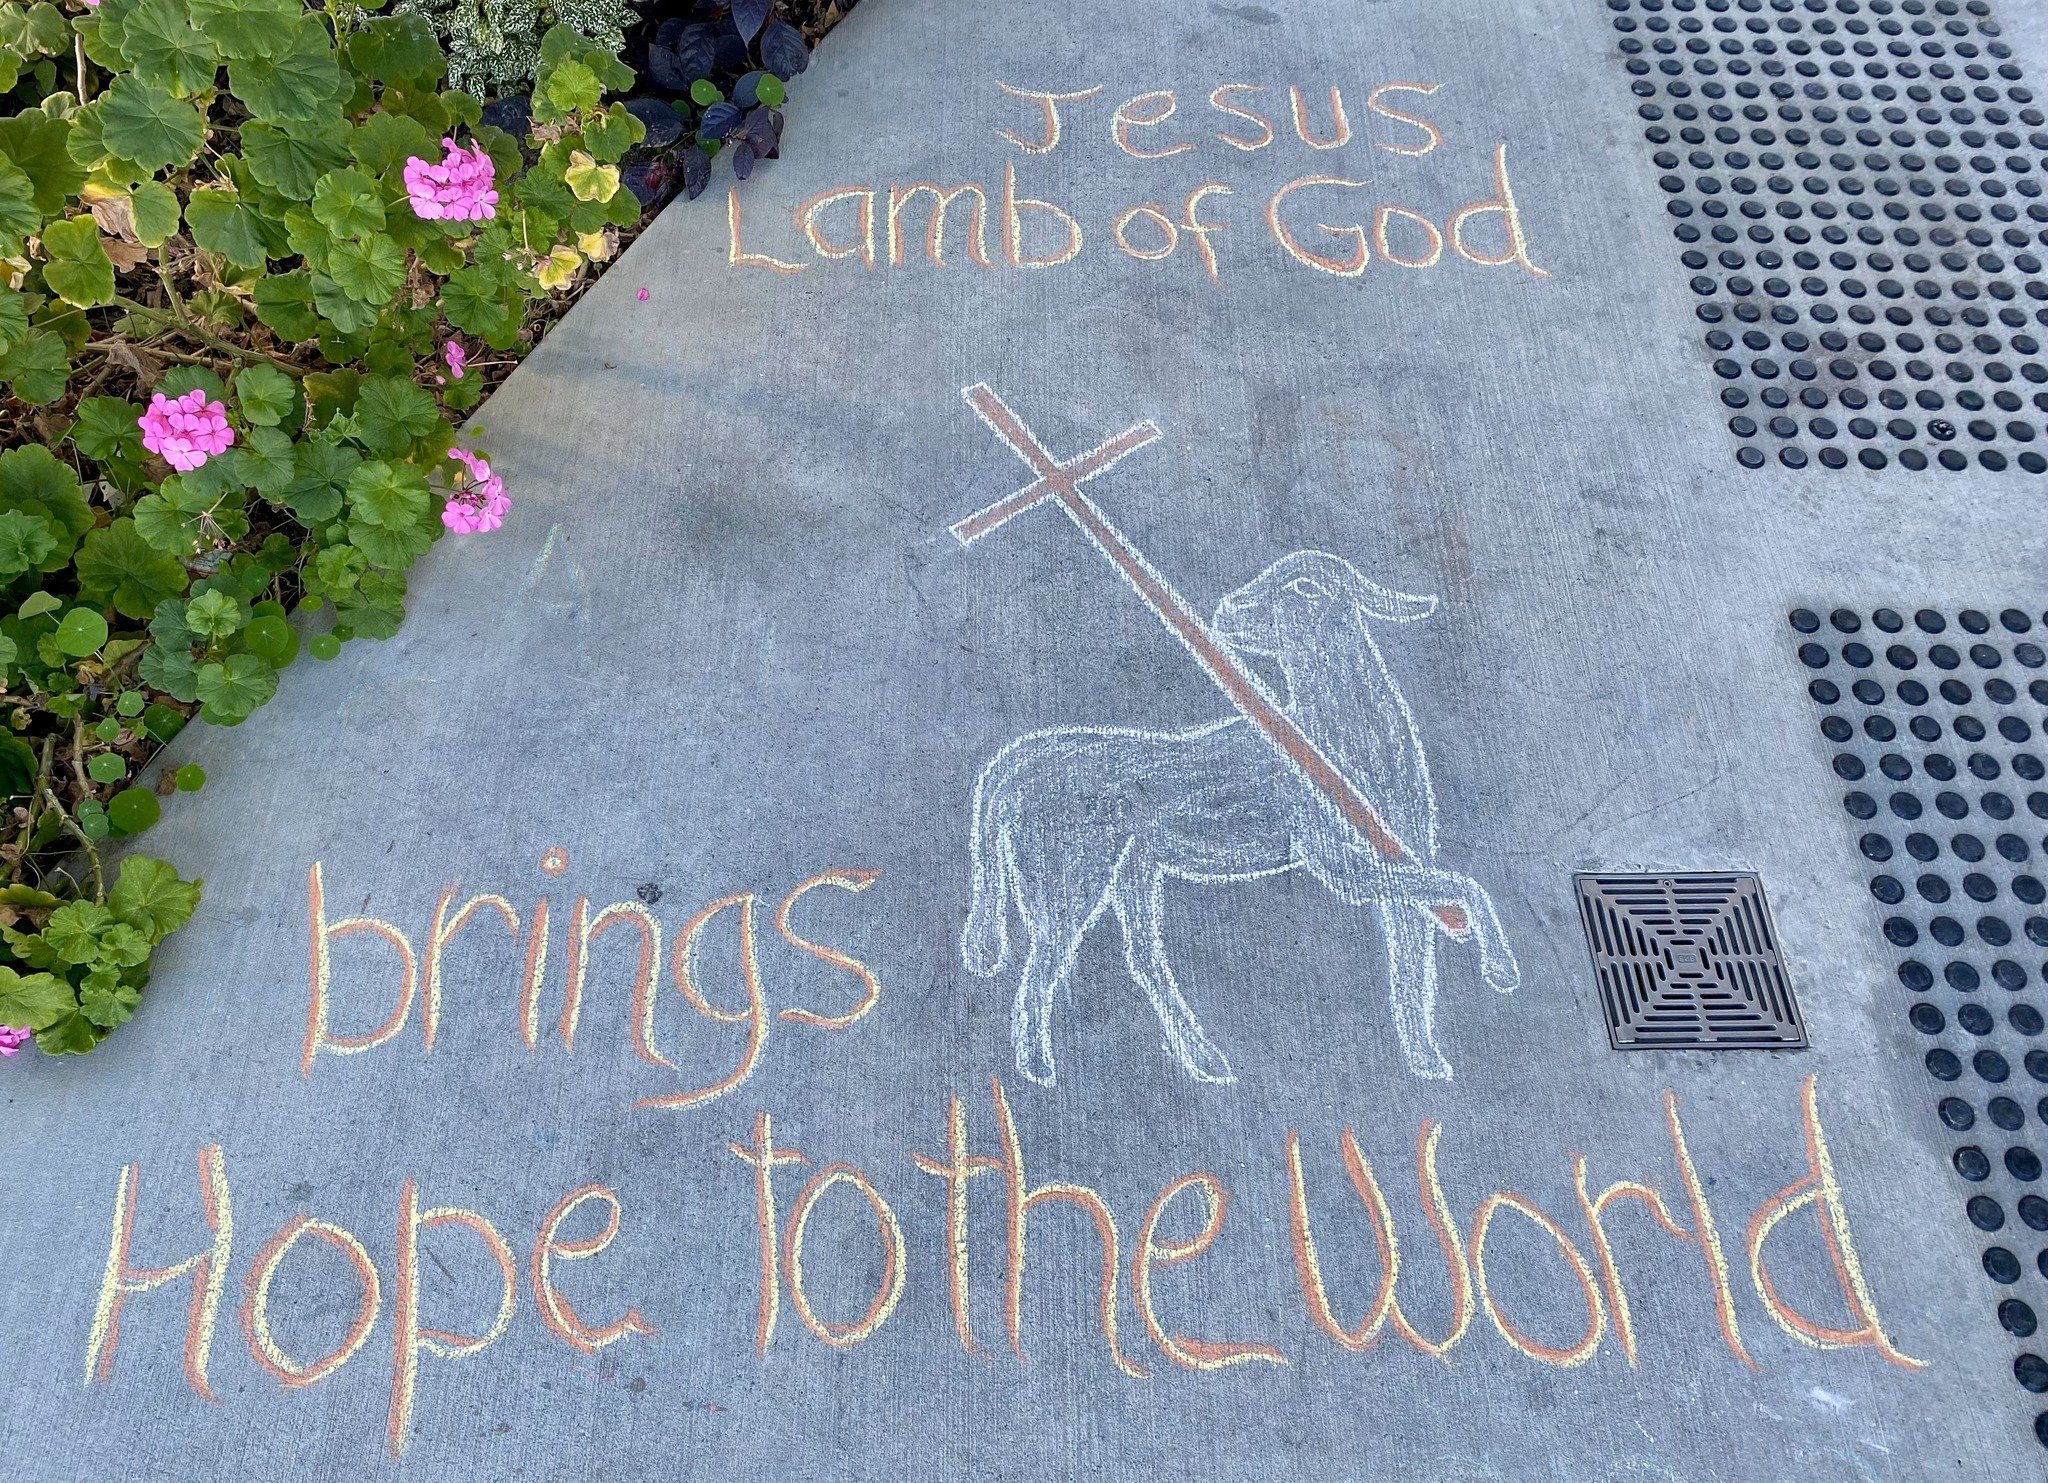 Jesus
Lamb of God
brings
Hope to the World